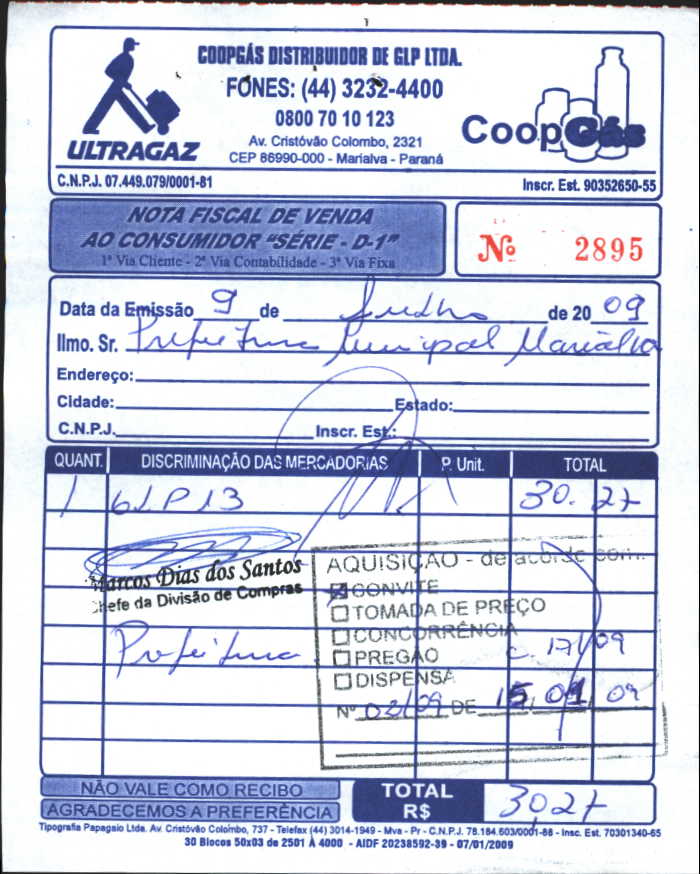 COOPGÁS DISTRIBUIDOR DE GLP LTDA.
FONES: (44) 3232-4400
0800 70 10 123
Av. Cristóvão Colombo, 2321
CEP 86990-000 - Marialva - Paraná
ULTRAGAZ
CoopGás
C.N.P.J. 07.449.079/0001-81
Inscr. Est. 90352650-55
NOTA FISCAL DE VENDA
AO CONSUMIDOR “SÉRIE - D-1”
1ª Via Cliente - 2ª Via Contabilidade - 3ª Via Fixa
Nº 2895
Data da Emissão 9 de Julho de 2009
Ilmo. Sr. Prefeitura Municipal Marialva
Endereço:
Cidade: Estado:
C.N.P.J. Inscr. Est.:
QUANT. DISCRIMINAÇÃO DAS MERCADORIAS P. Unit. TOTAL
1 GLP 13 30.27
Marcos Dias dos Santos
Chefe da Divisão de Compras
Prefeitura
AQUISIÇÃO - de acordo com:
CONVITE
TOMADA DE PREÇO
CONCORRÊNCIA
PREGÃO C. 17/09
DISPENSA
Nº 02/09 DE 15 01 09
NÃO VALE COMO RECIBO
AGRADECEMOS A PREFERÊNCIA
TOTAL R$ 30,27
Tipografia Papagaio Ltda. Av. Cristóvão Colombo, 737 - Telefax (44) 3014-1949 - Mva - Pr - C.N.P.J. 78.184.603/0001-88 - Insc. Est. 70301340-65
30 Blocos 50x03 de 2501 À 4000 - AIDF 20238592-39 - 07/01/2009